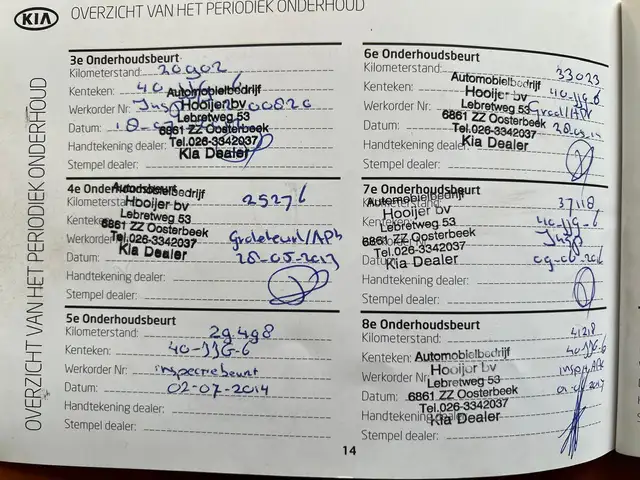 KIA
OVERZICHT VAN HET PERIODIEK ONDERHOUD
OVERZICHT VAN HET PERIODIEK ONDERHOUD
3e Onderhoudsbeurt
Kilometerstand: 20902
Kenteken:
Werkorder Nr:
Datum:
Handtekening dealer:
Stempel dealer:
Automobielbedrijf
Hooijer bv
Lebretweg 53
6861 ZZ Oosterbeek
Tel.026-3342037
Kia Dealer
4e Onderhoudsbeurt
Kilometerstand: 25276
Kenteken
Werkorder Grotebeurt/APK
Datum: 28-05-2013
Handtekening dealer:
Stempel dealer:
Automobielbedrijf
Hooijer bv
Lebretweg 53
6861 ZZ Oosterbeek
Tel.026-3342037
Kia Dealer
5e Onderhoudsbeurt
Kilometerstand: 29498
Kenteken: 40-JJG-6
Werkorder Nr: inspectiebeurt
Datum: 02-07-2014
Handtekening dealer:
Stempel dealer:
6e Onderhoudsbeurt
Kilometerstand: 33023
Kenteken: 40-JJG-6
Werkorder Nr:
Datum:
Handtekening dealer:
Stempel dealer:
Automobielbedrijf
Hooijer bv
Lebretweg 53
6861 ZZ Oosterbeek
Tel.026-3342037
Kia Dealer
7e Onderhoudsbeurt
Kilometerstand 37118
Kenteken: 40-JJG-6
Insp
Datum:
Handtekening dealer:
Stempel dealer:
Automobielbedrijf
Hooijer bv
Lebretweg 53
6861 ZZ Oosterbeek
Tel.026-3342037
Kia Dealer
8e Onderhoudsbeurt
Kilometerstand: 41218
Kenteken: 40-JJG-6
Werkorder Nr
Datum:
Handtekening dealer:
Stempel dealer:
Automobielbedrijf
Hooijer bv
Lebretweg 53
6861 ZZ Oosterbeek
Tel.026-3342037
Kia Dealer
14